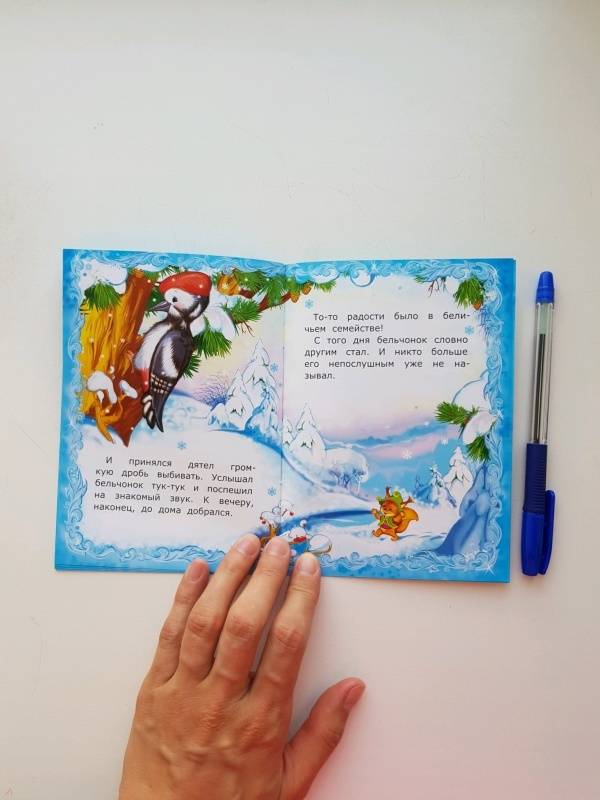 И принялся дятел гром-
кую дробь выбивать. Услышал
бельчонок тук-тук и поспешил
на знакомый звук. К вечеру,
наконец, до дома добрался.
То-то радости было в бели-
чьем семействе!
С того дня бельчонок словно
другим стал. И никто больше
его непослушным уже не на-
зывал.